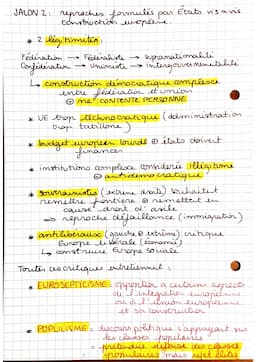 JALON 2 : reproches formulés par États vis à vis
construction européenne.
* 2 légitimités :
Fédération → Fédéraliste → supranationalité
Confédération → Unioniste → intergouvernementalité
↳ construction démocratique complexe
entre fédération et union
⊖ ne CONTENTE PERSONNE
* UE trop technocratique (administration
trop tatillone)
* budget européen lourd ⊕ états doivent
finances
* institutions complexe considérée illégitime
⊕ antidémocratique
* souverainistes (extrême droite) souhaitent
remettre frontière ⊕ remettent en
cause droit d'asile
⇒ reproche défaillance (immigration)
* antilibéraux (gauche ⊕ extrême) critique
Europe libérale (économie)
↳ construire Europe sociale
Toutes ces critiques entretiennent :
* EUROSEPTICISME : opposition a certains aspects
de l'intégration européenne
ou à l'union européenne
et sa construction
* POPULISME : discours politique s'appuyant sur
les classes populaires
→ prétendue défense des classes
populaires mais rejet élites